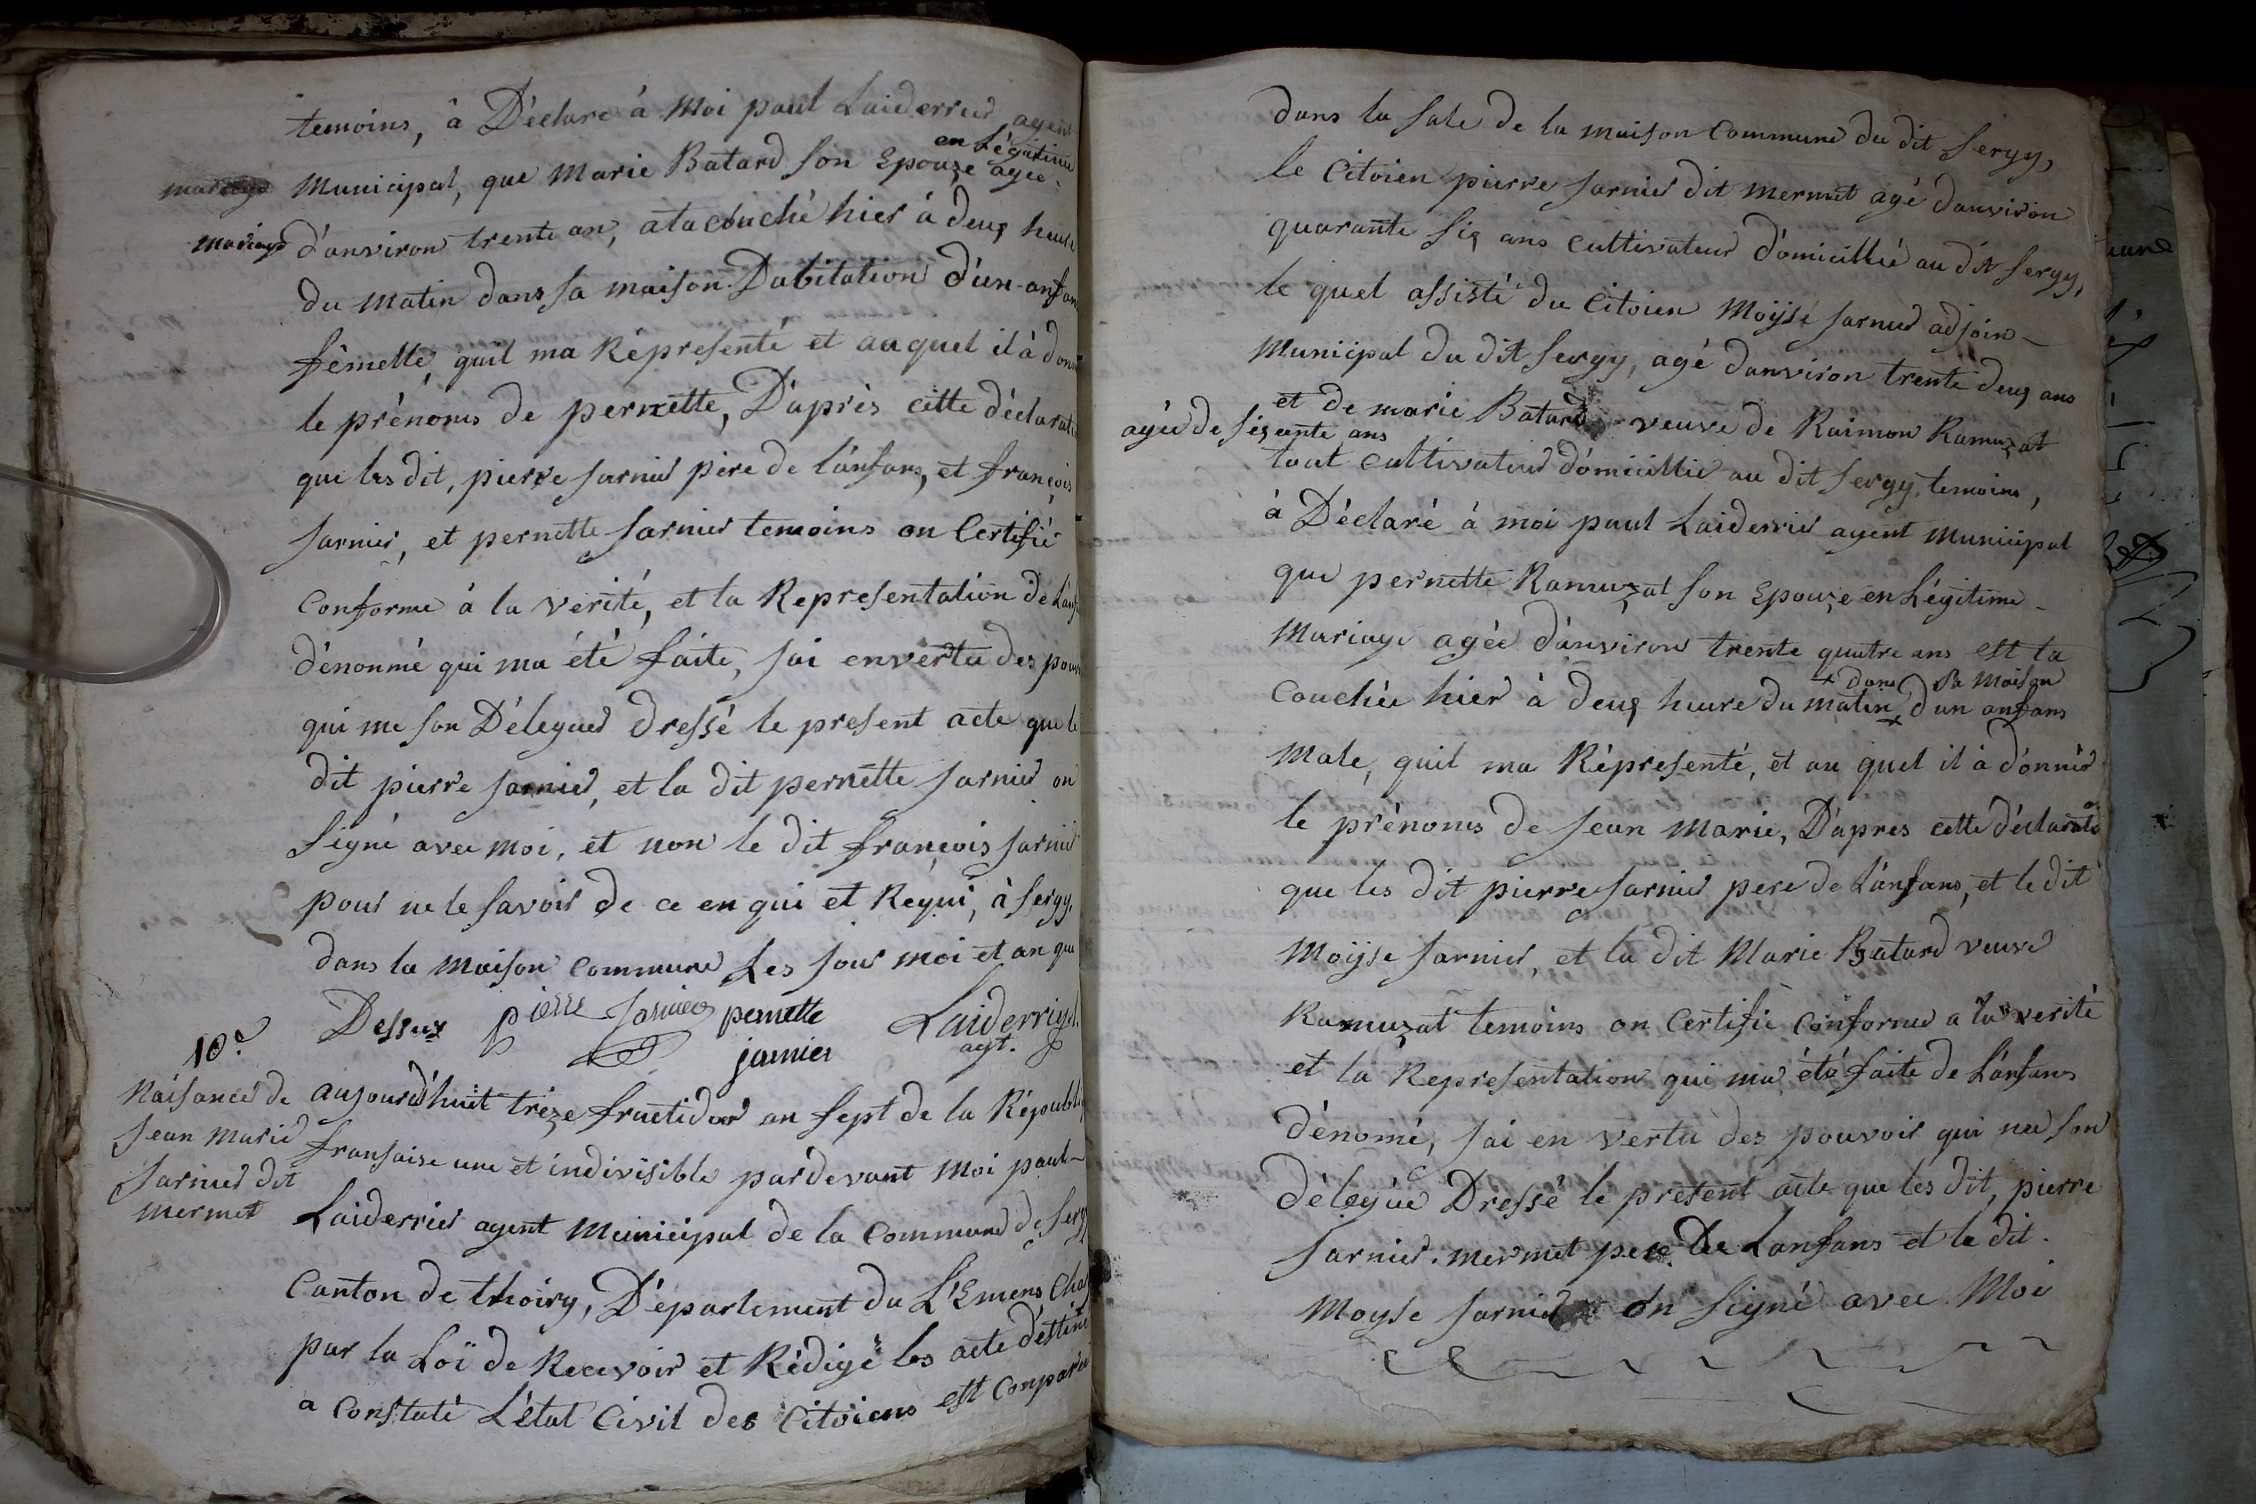 temoins, â Déclaré á Moi paul Laiderrier agent
en Légitime
Municipal, que Marie Batard son Epouze agée
mariage
mariage
d'anviron trente an, ata couché hier á deux heure
du matin dans sa maison Dabitation d'un anfan
fêmelle, quil ma Réprésenté et auquel il à donné
le prénoms de pernette, D'aprés cette déclarati
que les dit, pierre Jarnier pére de l'ánfans, et françois
Jarnier, et pernette Jarnier temoins on Certifié
Conforme á la verité, et la Representation de Lanfa
dénonmé qui ma été faite, Jai envertu des pouv
qui me son Délegues dressé le present acte que le
dit pierre Jarnier, et la dit pernette Jarnier on
Signé avec moi, et non le dit françois Jarnier
pour ne le savoir de ce en qui et Réqui, à Sergy,
dans la Maison Commune Les Jour moi et an que
Dessux pierre Jarnier pernette Laiderrier
jarnier agt.
10e
Naisance de
Jean Marie
Jarnier dit
Mermet
aujourd'huit treze fructidor an Sept de la Républi
fransaise une et indivisible pardevant Moi paul
Laiderrier agent Municipal de la Commune de Serg
Canton de thoiry, Département du L'Emens Cha
par la Loï de Recevoir et Rédigé les acte déstiné
a Constaté L'état Civil des Citoiens est Conparu
dans la Sale de la maison Commune du dit Sergy,
le Citoien pierre Jarnier dit mermet agé danviron
quarante six ans cultivateur d'omicillié au dit Sergy,
le quel assisté du Citoien Moÿsé Jarnier adjoin
Municipal du dit Sergy, agé danviron trente deux ans
et de marie Batard veuve de Raimon Ramuzat
agée de sixcente ans
tout cultivateur d'omicillie au dit Sergy, temoins,
à Déclaré à moi paul Laiderrier agent Municipal
que pernette Ramuzat son Epouze en Légitime
Mariage agée d'anviron trente quatre ans est ta
+ dans Sa Maison
Couchée hier à deux heure du matin + d'un anfans
Male, quil ma Réprésenté, et au quel il à d'onnér
le prénoms de Jean Marie, D'apres cette déclaratio
que les dit pierre Jarnier pere de L'anfans, et le dit
Moÿse Jarnier, et la dit Marie Batard veuve
Ramuzat temoins on Certifié Conforme a la verité
et la Representation qui ma été faite de L'anfans
dénomé, Jai en vertu des pouvoir qui me son
délegue Dressé le present acte que les dit, pierre
Jarnier. mermet pere De Lanfans et le dit
Moyse Jarnier on Signé avec Moi